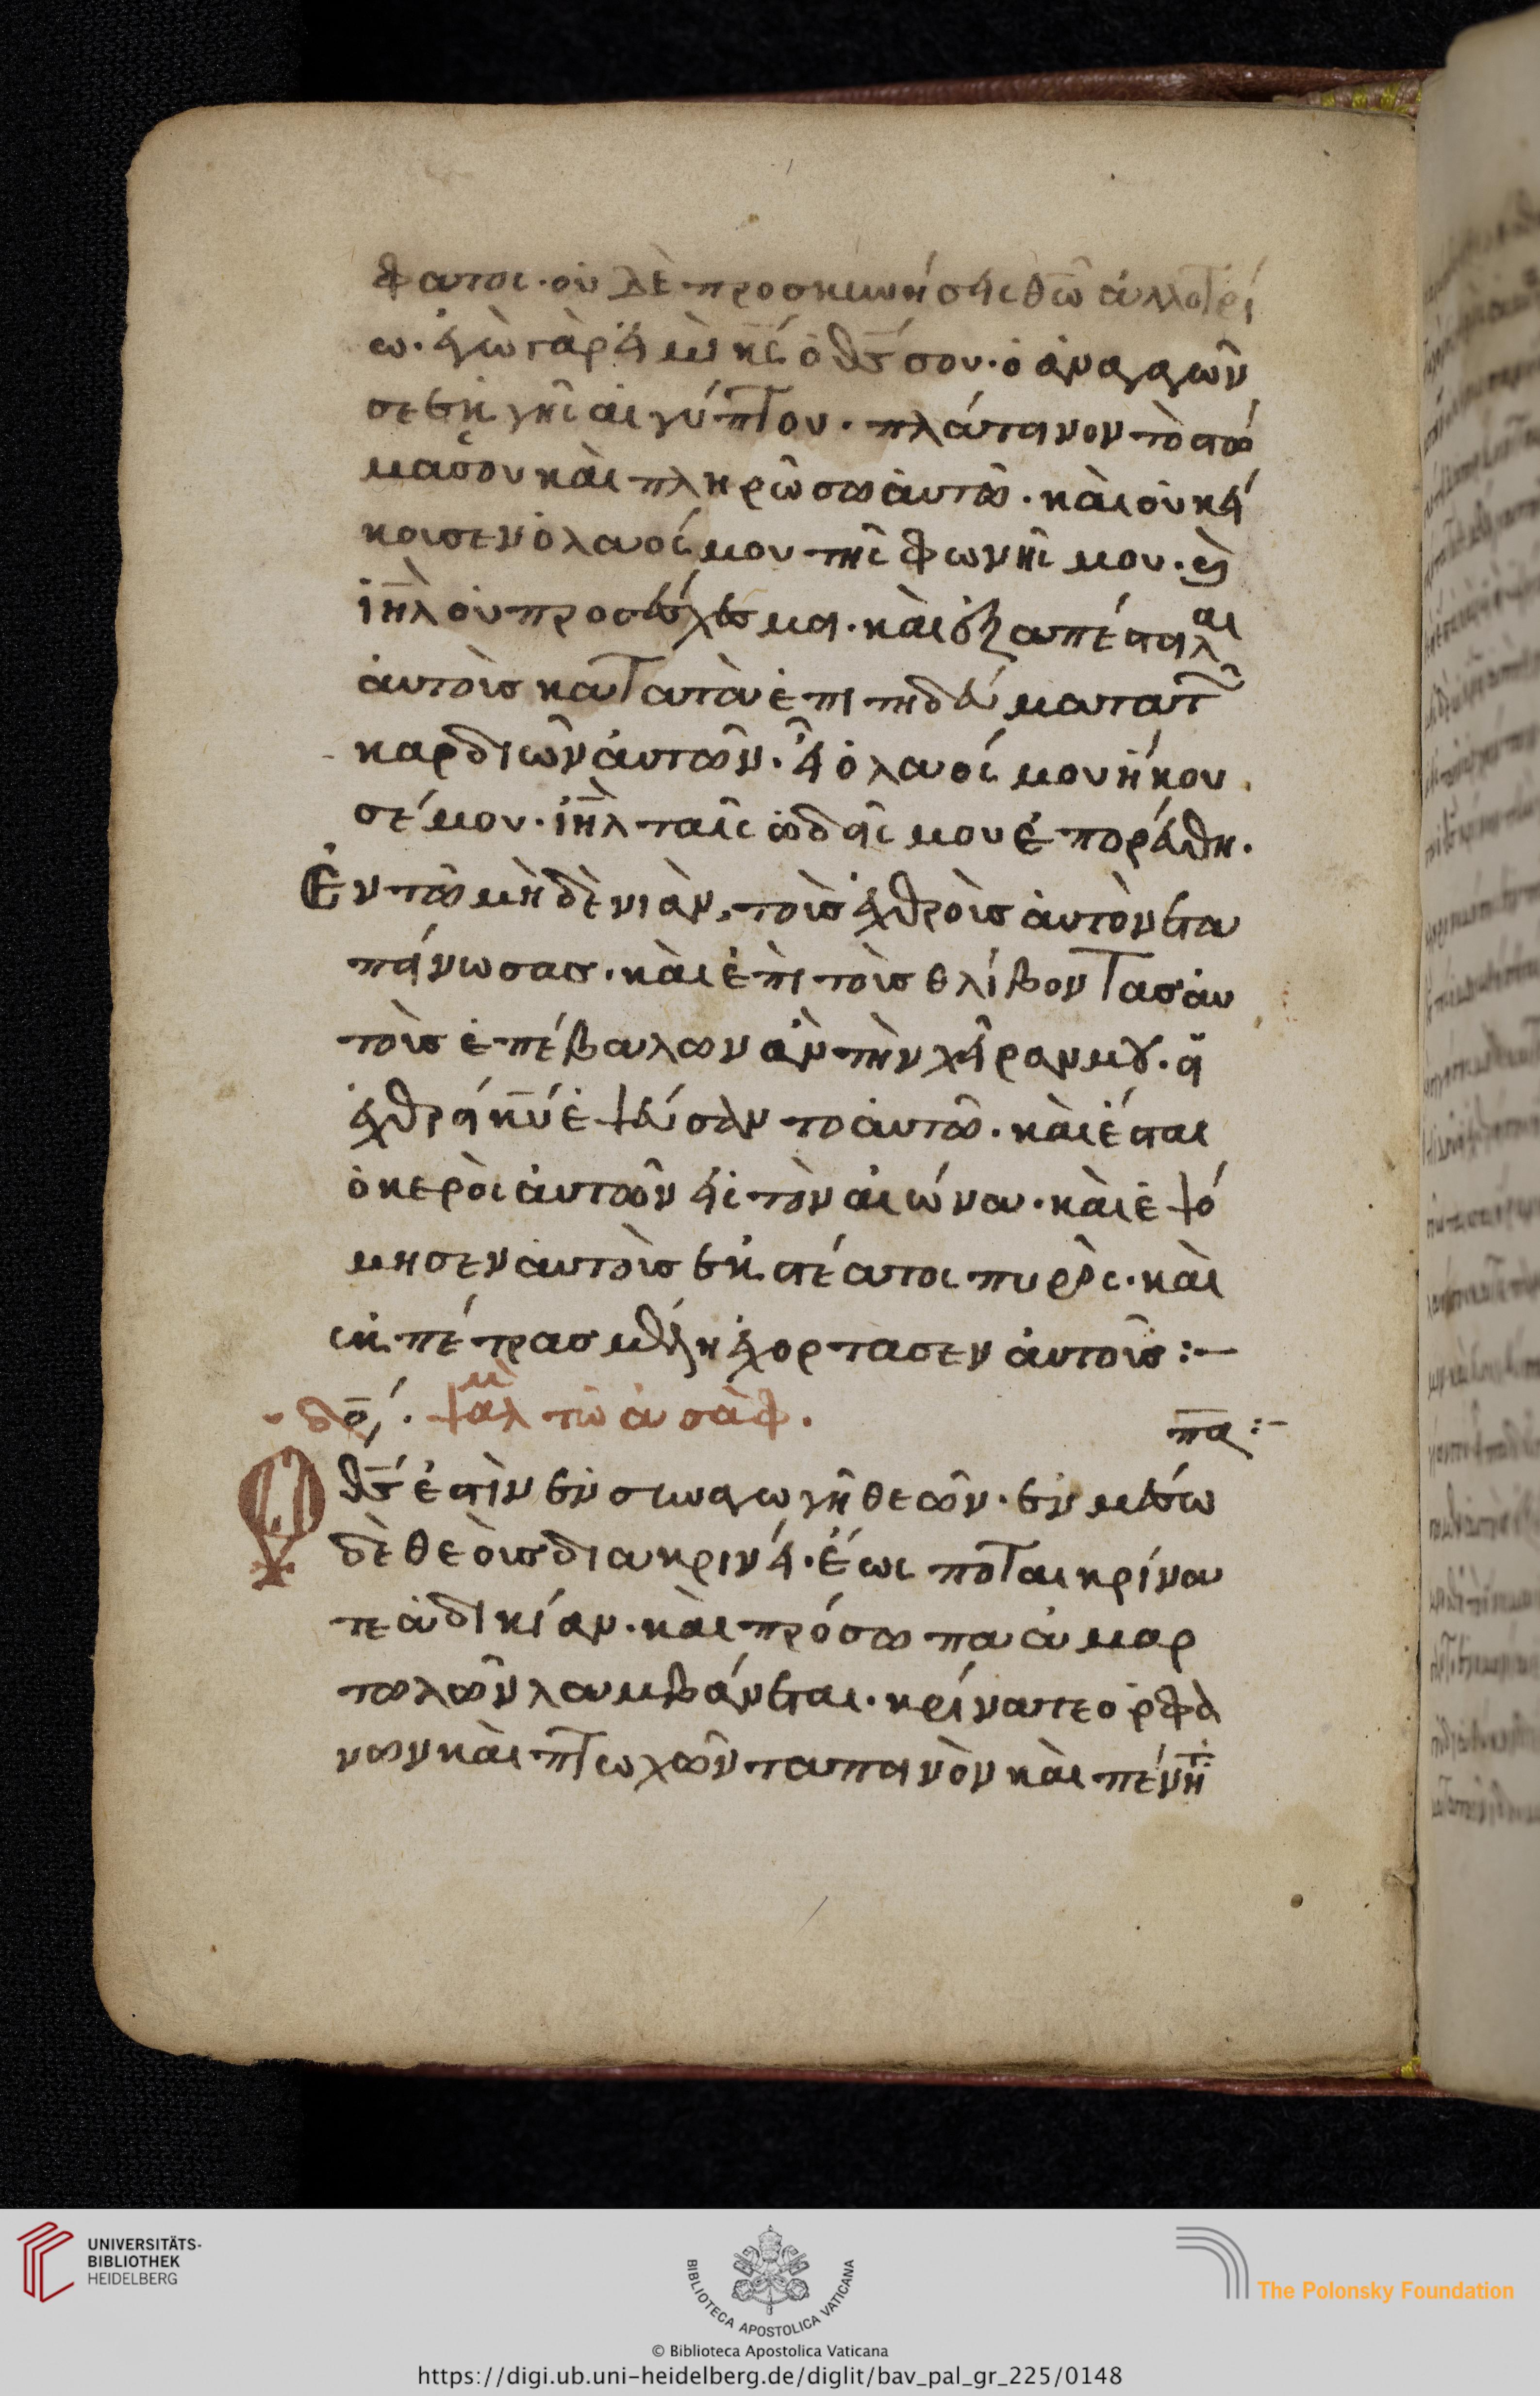 φατος· οὐ δὲ προσκυνήσεις θ̅ω̅ ἀλλοτρί
ω· ἐγὼ γὰρ εἰμὶ κ̅ς̅ ὁ θ̅ς̅ σου· ὁ ἀναγαγὼν
σε ἐκ γῆς αἰγύπτου· πλάτηνον τὸ στό
μα σου καὶ πληρώσω αὐτῶ· καὶ οὐκ εἴ
κουσεν ὁ λαός μου τῆς φωνῆς μου· καὶ
ἰ̅η̅λ̅ οὐ προσέσχε μοι· καὶ ἐξαπέστηλαι
αὐτοὺς κατὰ τὰ ἐπιτηδεύματα τ
καρδιῶν αὐτῶν· εἰ ὁ λαός μου ἤκου
σέ μου· ἰ̅η̅λ̅ ταῖς ὁδοῖς μου ἐπορεύθη·
Ἐν τῶ μηδενὶ ἂν τοὺς ἐχθροὺς αὐτὸν ετα
πήνωσας· καὶ ἐπὶ τοὺς θλίβοντας αὐ
τοὺς ἐπέβαλων ἂν τὴν χεῖραν μου· οἱ
ἐχθροί κ̅υ̅ ἐψεύσαν το αὐτῶ· καὶ ἔσται
ὁ κερὸς αὐτῶν εἰς τὸν αἰώνα· καὶ ἐψό
μησεν αὐτοὺς ἐκ στέατος πυρὸς· καὶ
ἐκ πέτρας μέλη ἐχορτασεν αὐτοῦς :—
δο̅,· ψαλμ τῶ ἀσὰφ. π̅α̅ :-
Ὁ θ̅ς̅ ἔστὶν ἐν συναγωγῆ θεῶν· ἐν μέσω
δὲ θεοὺς διακρινεῖ· ἕως ποται κρίνα
τε ἀδικίαν· καὶ πρόσωπα ἁμαρ
τωλῶν λαμβάνεται· κρίνατε ὀρφὰ
νων καὶ πτωχῶν ταπηνὸν καὶ πένητ
UNIVERSITÄTS-
BIBLIOTHEK
HEIDELBERG
BIBLIOTECA APOSTOLICA VATICANA
© Biblioteca Apostolica Vaticana
The Polonsky Foundation
https://digi.ub.uni-heidelberg.de/diglit/bav_pal_gr_225/0148